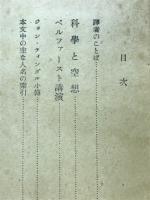 目次
譯者のことば
科學と空想
ベルファースト講演
ジョン・ティンダル小傳
本文中の主な人名の索引